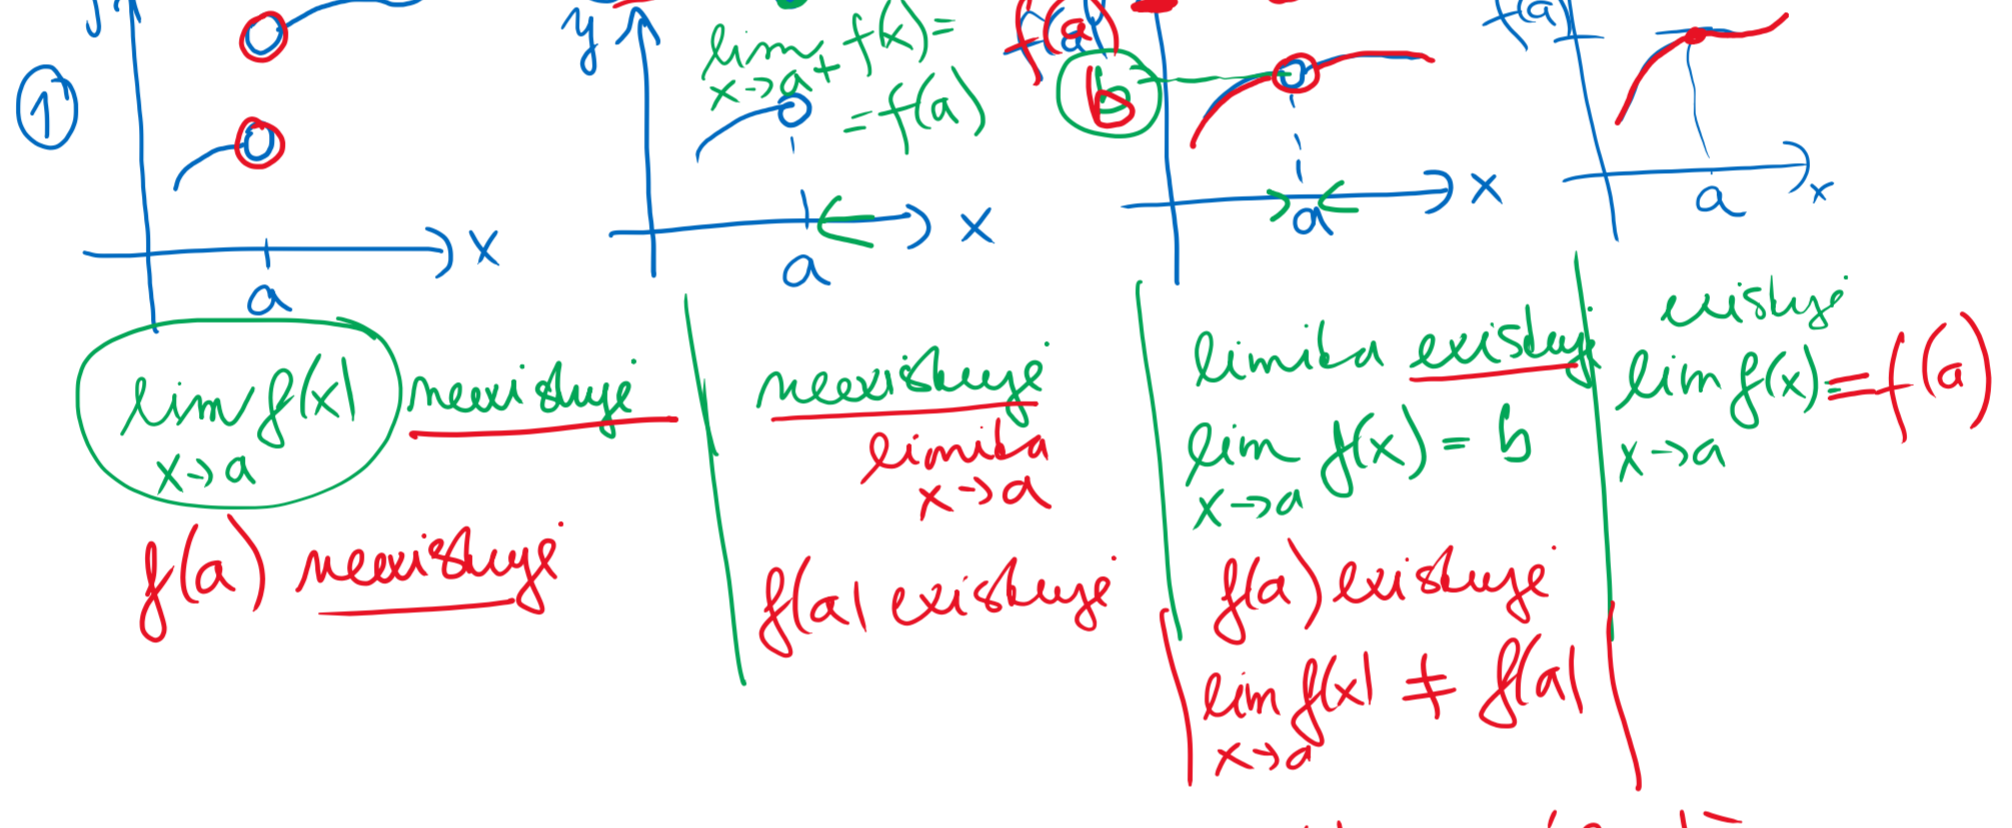 y
1
x
a
lim f(x) neexistuje
x→a
f(a) neexistuje
y
lim f(x) =
x→a+
= f(a)
x
a
neexistuje
limita
x→a
f(a) existuje
f(a)
b
x
a
limita existuje
lim f(x) = b
x→a
f(a) existuje
lim f(x) ≠ f(a)
x→a
f(a)
x
a
existuje
lim f(x) = f(a)
x→a